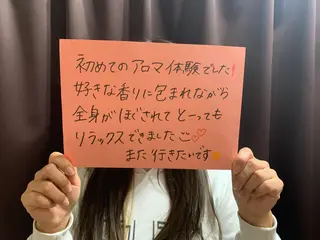 初めてのアロマ体験でした!
好きな香りに包まれながら
全身がほぐされて とーっても
リラックスできました
また行きたいです